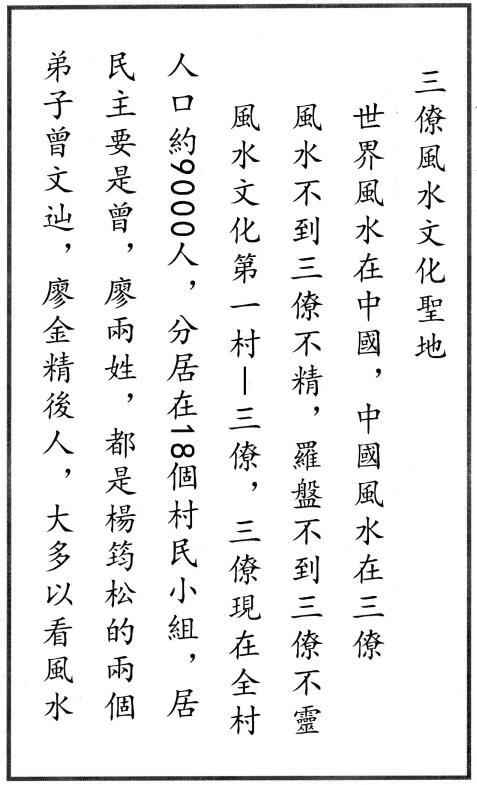 三僚風水文化聖地
世界風水在中國，中國風水在三僚
風水不到三僚不精，羅盤不到三僚不靈
風水文化第一村—三僚，三僚現在全村
人口約9000人，分居在18個村民小組，居
民主要是曾，廖兩姓，都是楊筠松的兩個
弟子曾文辿，廖金精後人，大多以看風水